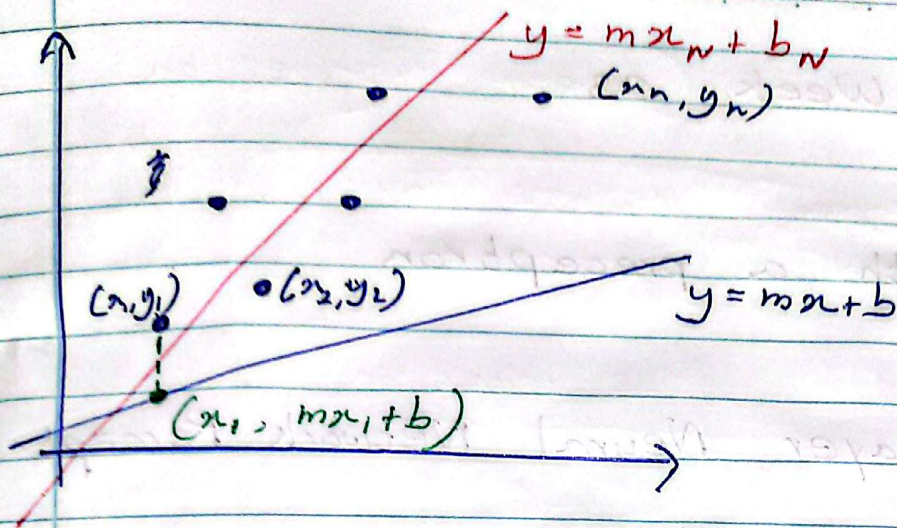 y = mx_N + b_N
(x_n, y_n)
(x_1, y_1)
(x_2, y_2)
y = mx + b
(x_1, mx_1 + b)